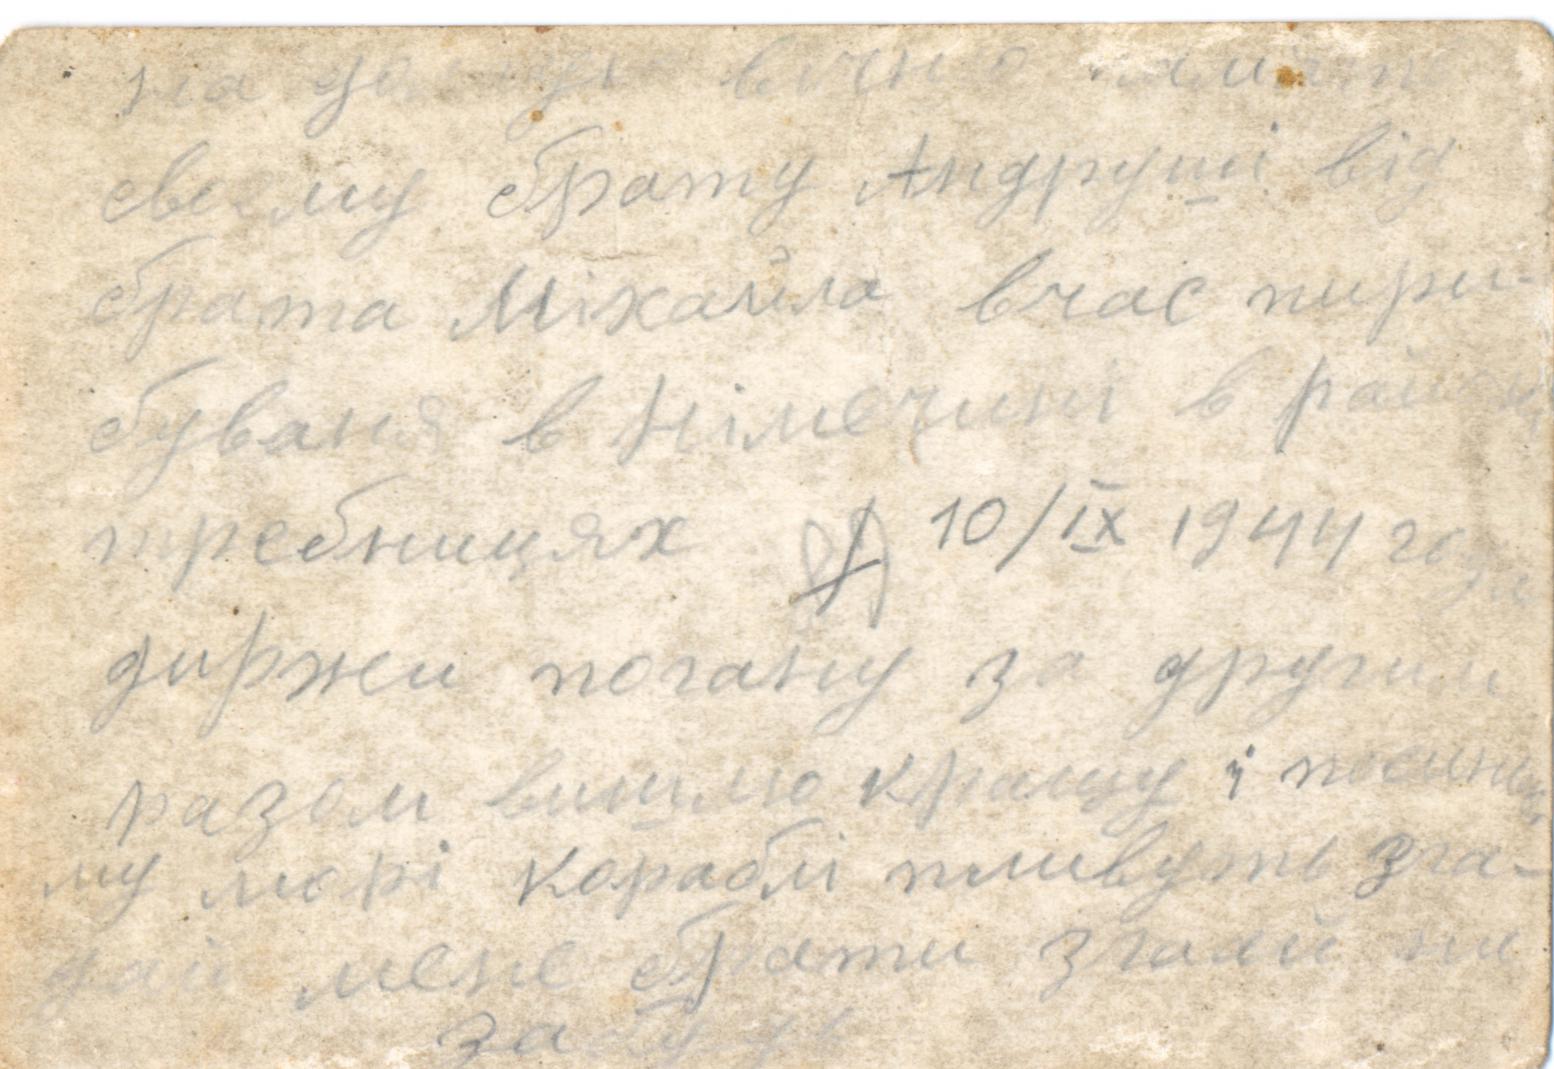 на вічно
своєму брату Андруші від
брата Міхайла вчас пири-
буваня в Німечині в районі
требницях 10/IX 1944 года
диржи погану за другим
разом вишлю кращу і посиньо
му морі кораблі пливуть зга-
дай мене брати згадай ни
забудь